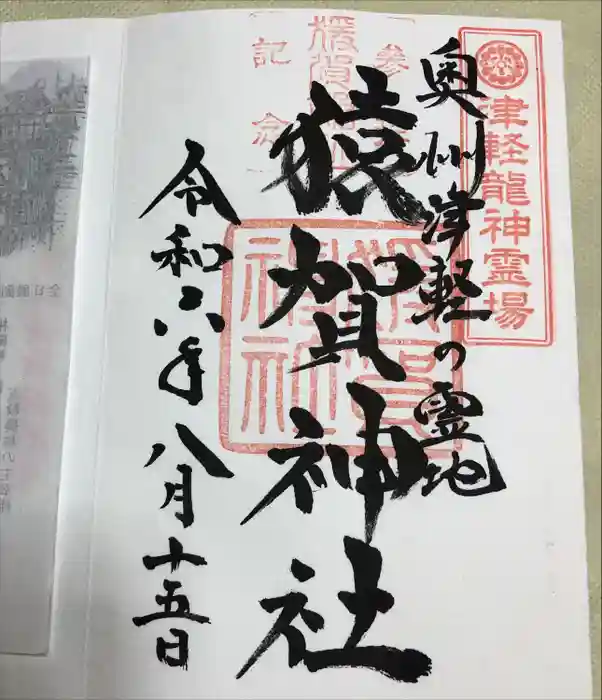 津軽龍神霊場
奥州津軽の霊地
猿賀神社
猿賀神社
参
記念
令和六年八月十五日